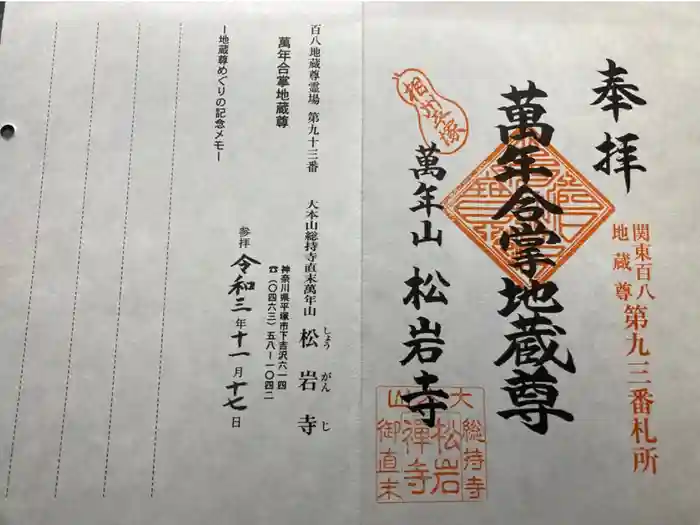 奉拝
関東百八
地蔵尊
第九三番札所
萬年合掌地蔵尊
相州平塚
萬年山 松岩寺
大
総持寺
松岩
禅寺
山
御直末
百八地蔵尊霊場 第九十三番
大本山総持寺直末萬年山 松岩寺
しょう がん じ
萬年合掌地蔵尊
神奈川県平塚市下吉沢六一四
☎(〇四六三)五八ー一〇四二
参拝 令和三年十一月十七日
ー地蔵尊めぐりの記念メモー